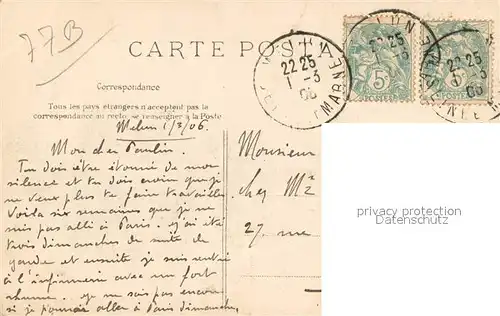 77B
CARTE POSTALE
Correspondance
Tous les pays étrangers n'acceptent pas la
correspondance au recto, se renseigner à la Poste
MELUN
22 25
1 - 3
06
MARNE
22 25
22 25
3
06
5c
Melun 1/3/06.
Mon cher Paulin.
Tu dois être étonné de mon
silence et tu dois croire que je
ne veux plus te faire travailler.
Voila six semaines que je ne
suis pas allé à Paris. j'ai été
trois dimanches de suite de
garde et ensuite je suis rentré
à l'infirmerie avec un fort
rhume. je ne sais pas encore
si je pourrai aller à Paris dimanche,
Monsieur
chez Mr
27, rue
privacy protection
Datenschutz